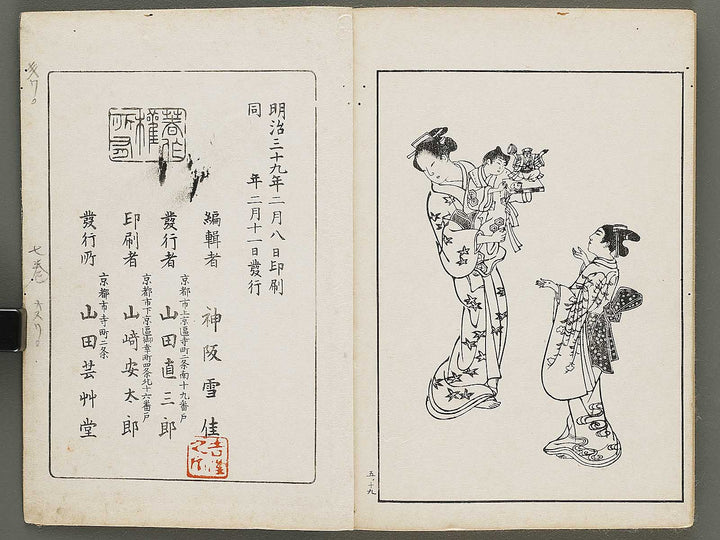 五、十九
明治三十九年二月八日印刷
同年二月十一日發行
著作權所有
編輯者 神阪雪佳
京都市上京區寺町二条南十九番戸
發行者 山田直三郎
京都市下京區御幸町四条北十六番戸
印刷者 山崎安太郎
京都市寺町二条
發行所 山田芸艸堂